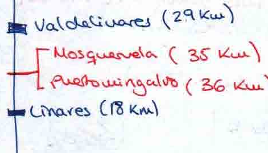 Valdelinares (29 Km)
Mosqueruela (35 Km)
Puertomingalvo (36 Km)
Linares (18 Km)